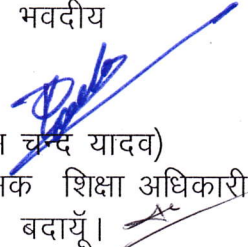 भवदीय
चन्द यादव)
शिक्षा अधिकारी
बदायूॅ।